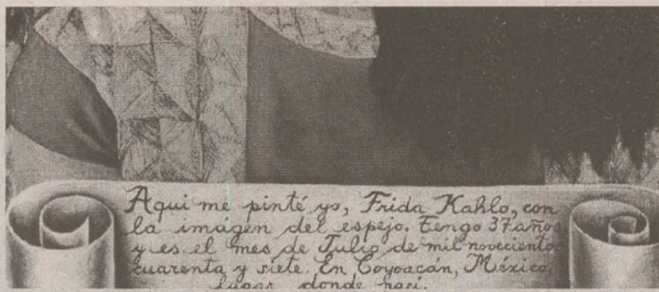 Aqui me pinté yo, Frida Kahlo, con
la imágen del espejo. Tengo 37 años
y es el mes de Julio de mil novecientos
cuarenta y siete. En Coyoacán, México,
lugar donde nací.